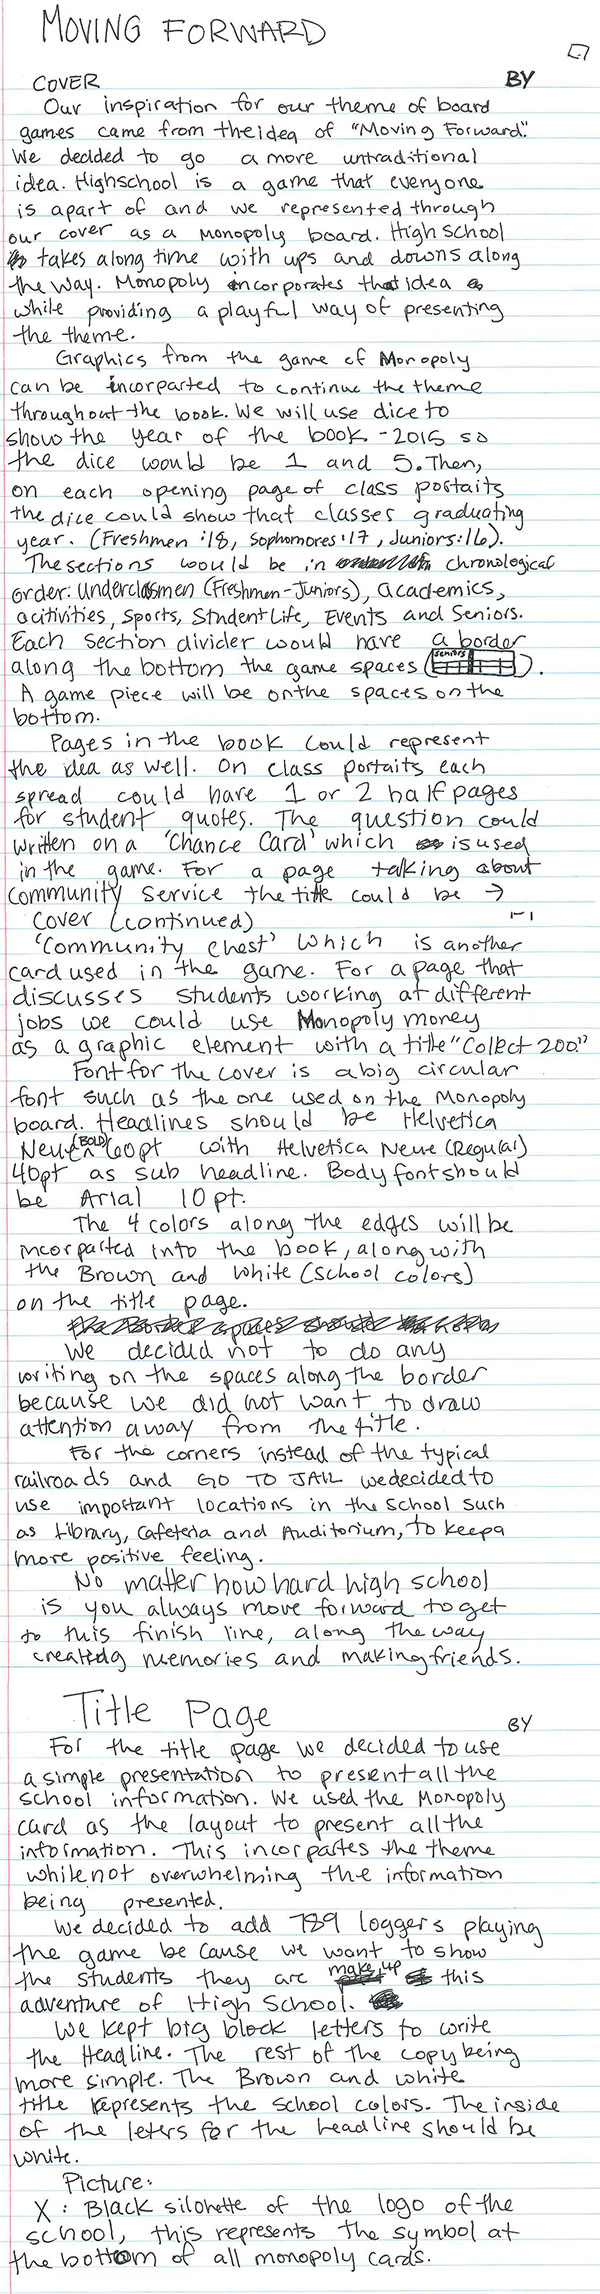 MOVING FORWARD
COVER BY
Our inspiration for our theme of board
games came from the idea of "Moving Forward".
We decided to go a more untraditional
idea. Highschool is a game that everyone
is apart of and we represented through
our cover as a Monopoly board. High School
takes along time with ups and downs along
the way. Monopoly incorporates that idea
while providing a playful way of presenting
the theme.
Graphics from the game of Monopoly
can be incorparted to continue the theme
throughout the book. We will use dice to
show the year of the book - 2015 so
the dice would be 1 and 5. Then,
on each opening page of class portaits
the dice could show that classes graduating
year. (Freshmen :18, Sophomores :17, Juniors :16).
The sections would be in chronological
order: Underclasmen (Freshmen - Juniors), academics,
acitivities, Sports, Student Life, Events and Seniors.
Each section divider would have a border
along the bottom the game spaces (SENIORS).
A game piece will be on the spaces on the
bottom.
Pages in the book could represent
the idea as well. On class portaits each
spread could have 1 or 2 half pages
for student quotes. The question could
written on a 'Chance Card' which is used
in the game. For a page talking about
Community Service the title could be →
Cover (continued)
'Community Chest' which is another
card used in the game. For a page that
discusses students working at different
jobs we could use Monopoly money
as a graphic element with a title "Collect 200."
Font for the cover is a big circular
font such as the one used on the Monopoly
board. Headlines should be Helvetica
Neue (BOLD) 60pt with Helvetica Neue (Regular)
40pt as sub headline. Body font should
be Arial 10pt.
The 4 colors along the edges will be
incorparted into the book, along with
the Brown and White (school colors)
on the title page.
We decided not to do any
writing on the spaces along the border
because we did not want to draw
attention away from the title.
For the corners instead of the typical
railroads and GO TO JAIL we decided to
use important locations in the school such
as Library, Cafeteria and Auditorium, to keep a
more positive feeling.
No matter how hard high school
is you always move forward to get
to this finish line, along the way
creating memories and making friends.
Title Page
BY
For the title page we decided to use
a simple presentation to present all the
school information. We used the Monopoly
card as the layout to present all the
information. This incorpartes the theme
while not overwhelming the information
being presented.
We decided to add 789 loggers playing
the game because we want to show
the students they are make up this
adventure of High School.
We kept big block letters to write
the Headline. The rest of the copy being
more simple. The Brown and white
title represents the school colors. The inside
of the leters for the headline should be
white.
Picture:
X : Black silohette of the logo of the
school, this represents the symbol at
the bottom of all monopoly cards.